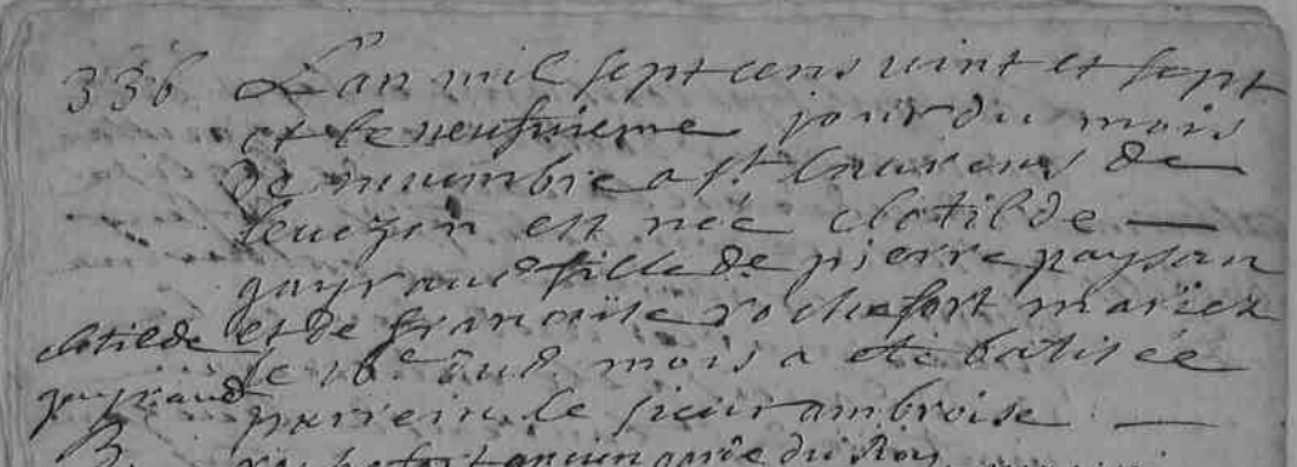 336 L'an mil sept cens vint et sept
et le neufvieme jour du mois
de nouembre a st laurens de
leuezon est née clotilde —
gayraud fille de pierre paysan
et de francoise rochefort mariez
clotilde
le 16e dud mois a eté batisée
gayraud
parrein le sieur ambroise —
B.
rochefort ancien garde du Roy